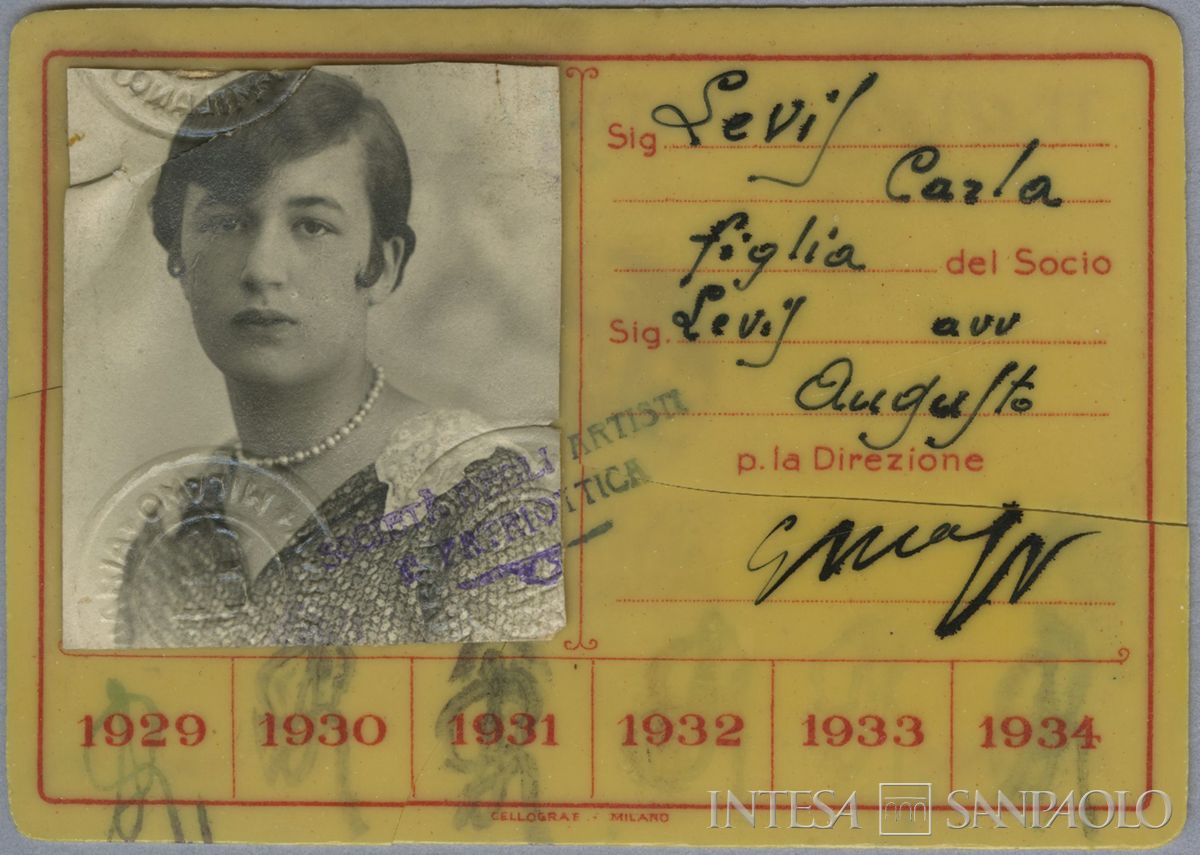 Sig. Levis
Carla
figlia del Socio
Sig. Levis avv
Augusto
p. la Direzione
SOCIETÀ DEGLI ARTISTI
E PATRIOTTICA
1929 1930 1931 1932 1933 1934
CELLOGRAF - MILANO
INTESA SANPAOLO